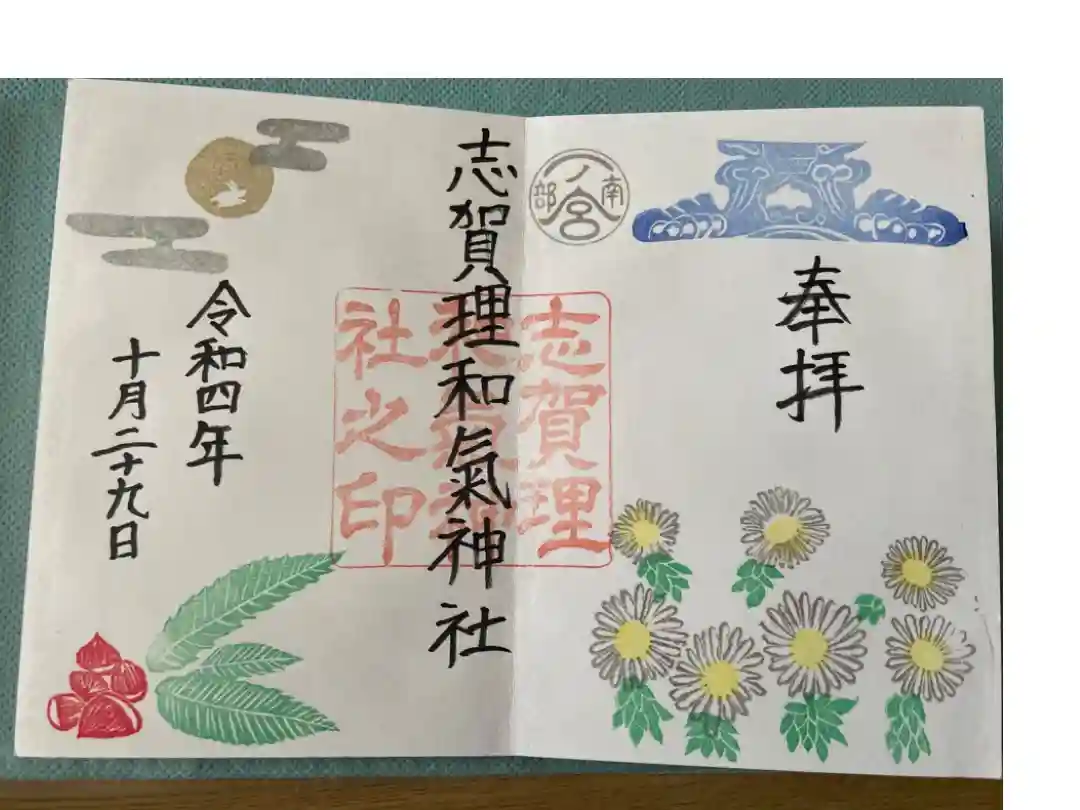 奉拝
南部
一ノ宮
志賀理
和氣神
社之印
志賀理和氣神社
令和四年
十月二十九日